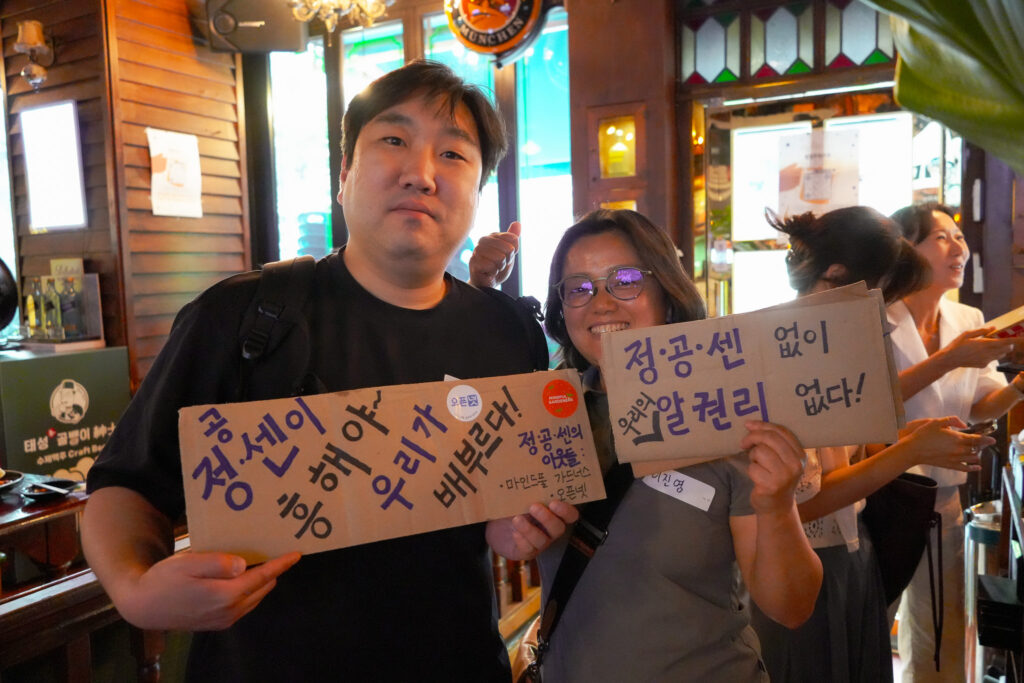 MÜNCHEN
태성 골뱅이
수제맥주 Craft
공
정·센이
흥해야~
우리가
배부르다!
오픈넷
MINDFUL
GARDENERS
정·공·센의
이웃들:
·마인드풀 가드너스
·오픈넷
정·공·센 없이
우리의 알권리 없다!